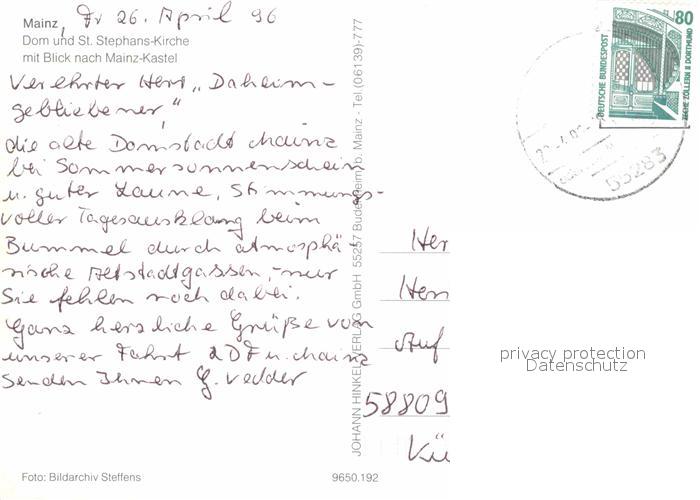 Mainz, Fr 26. April 96
Dom und St. Stephans-Kirche
mit Blick nach Mainz-Kastel
Verehrter Herr "Daheim-
gebliebener,"
die alte Domstadt Mainz
bei Sommersonnenschein
u. guter Laune, Stimmungs-
voller Tagesausklang beim
Bummel durch atmosphä-
rische Altstadtgassen, - nur
Sie fehlen noch dabei.
Ganz herzliche Grüße von
unserer Fahrt ZDF u. Mainz
senden Ihnen G. Vedder
Foto: Bildarchiv Steffens
9650.192
JOHANN HINKEL VERLAG GmbH 55257 Budenheim b. Mainz - Tel. (06139)-777
Her
Herr
Auf
58809
privacy protection
Datenschutz
80
DEUTSCHE BUNDESPOST
ZECHE ZOLLERN II DORTMUND
55283